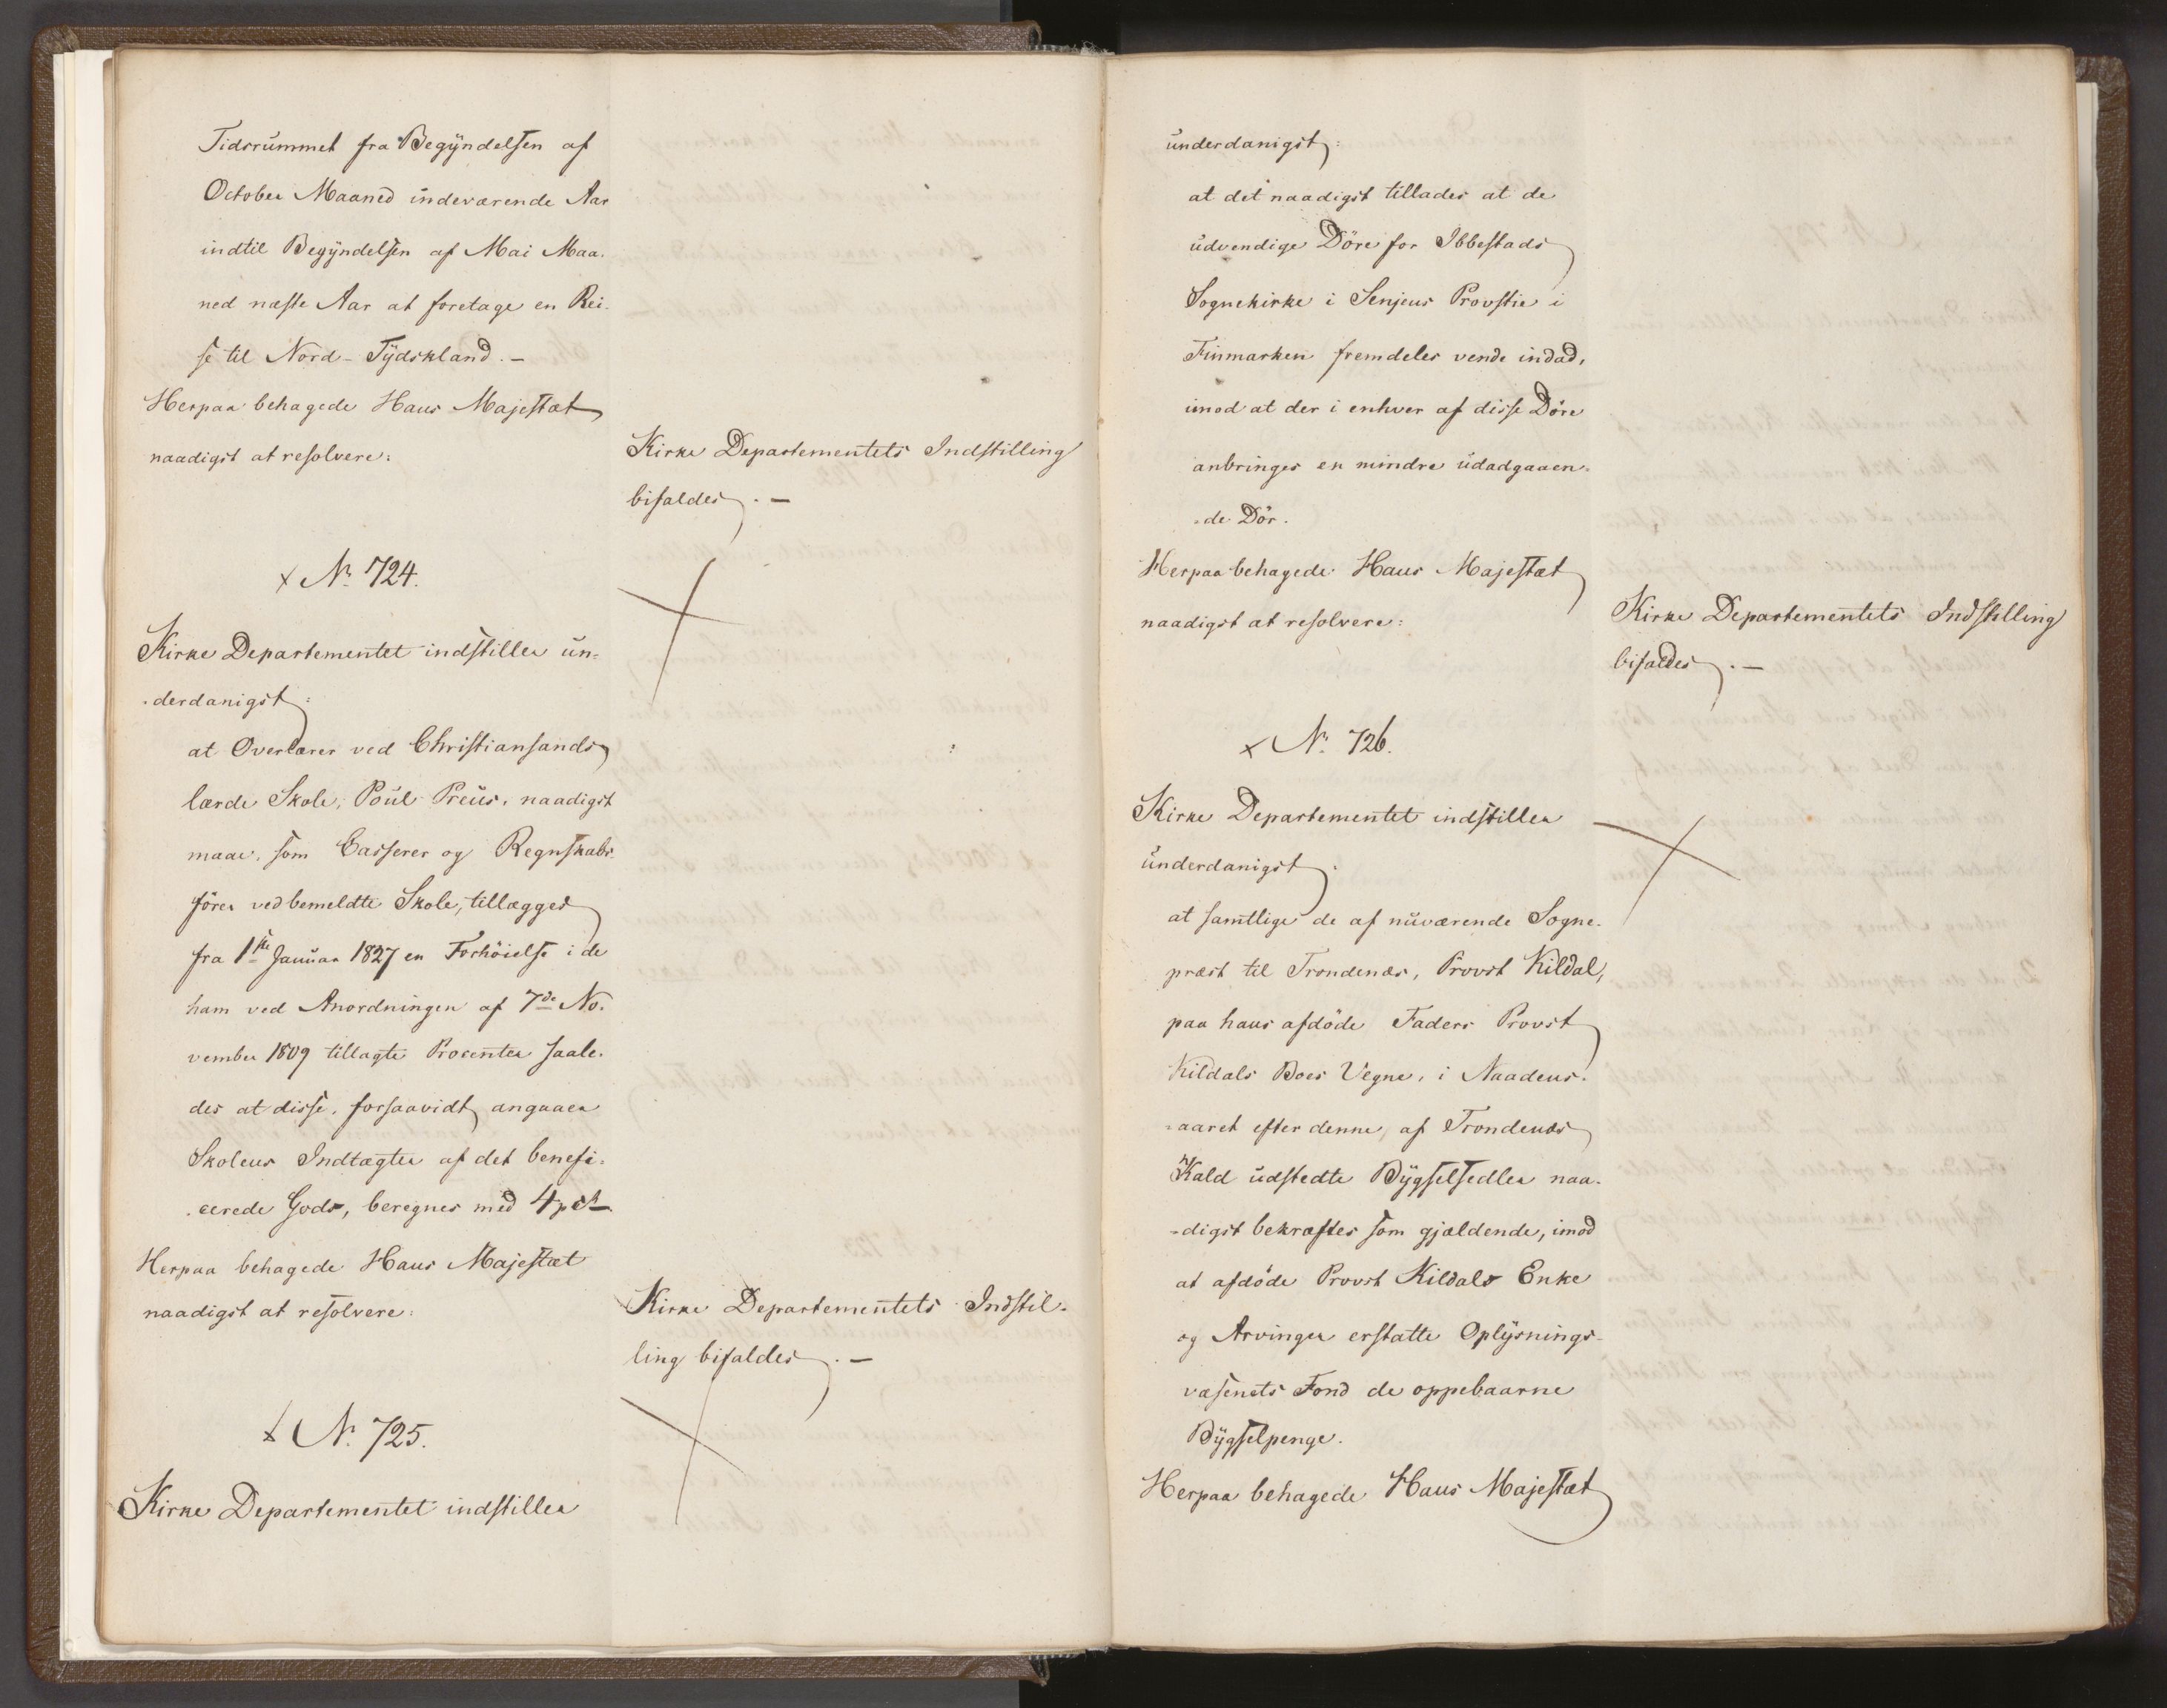 Tidsrummet fra Begyndelsen af
October Maaned indeværende Aar
indtil Begyndelsen af Mai Maa-
ned næste Aar at foretage en Rei-
se til Nord-Tydskland.-
Herpaa behagede Hans Majestæt
naadigst at resolvere:
Kirke Departementets Indstilling
bifaldes.-
x No 724.
Kirke Departementet indstiller un-
-derdanigst:
at Overlærer ved Christiansands
lærde Skole, Poul Preus, naadigst
maae, som Casserer og Regnskabs-
fører ved bemeldte Skole, tillægges
fra 1ste Januar 1827 en Forhøielse i de
ham ved Anordningen af 7de No-
vember 1809 tillagte Procenter saale-
des at disse, forsaavidt angaaer
Skolens Indtægter af det benefi-
-cerede Gods, beregnes med 4 pCt.
Herpaa behagede Hans Majestæt
naadigst at resolvere:
Kirke Departementets Indstil-
ling bifaldes.-
x No 725.
Kirke Departementet indstiller
underdanigst:
at det naadigst tillades at de
udvendige Döre for Ibbestads
Sognekirke i Senjens Provstie i
Finmarken fremdeles vende indad,
imod at der i enhver af disse Döre
anbringes en mindre udadgaaen-
-de Dör.
Herpaa behagede Hans Majestæt
naadigst at resolvere:
Kirke Departementets Indstilling
bifaldes.-
x No 726.
Kirke Departementet indstiller
underdanigst:
at samtlige de af nuværende Sogne-
præst til Trondenæs, Provst Kildal,
paa hans afdöde Faders Provst
Kildals Boes Vegne, i Naadens-
-aaret efter denne, af Trondenæs
Kald udstedte Bygselsedler naa-
-digst bekræftes som gjældende, imod
at afdöde Provst Kildals Enke
og Arvinger erstatte Oplysnings-
væsenets Fond de oppebaarne
Bygselpenge.
Herpaa behagede Hans Majestæt